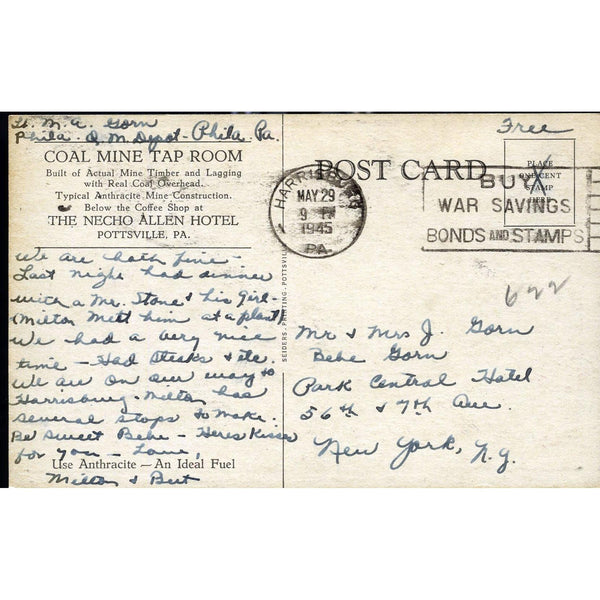 Lt. M. A. Gorn
Phila. Q. M. Depot - Phila. Pa.
COAL MINE TAP ROOM
Built of Actual Mine Timber and Lagging
with Real Coal Overhead.
Typical Anthracite Mine Construction.
Below the Coffee Shop at
THE NECHO ALLEN HOTEL
POTTSVILLE, PA.
We are both fine -
Last night had dinner
with a Mr. Stone & his Girl -
(Milton Mett him at a plant)
We had a very nice
time - Had Steeks & etc.
We are on our way to
Harrisburg - Milton has
several stops to make.
Be Sweet Bebe - Heres Kisses
for you - Love,
Use Anthracite — An Ideal Fuel
Milton & Bert
SEIDERS - PRINTING - POTTSVILLE
Free
POST CARD
PLACE
ONE CENT
STAMP
HERE
HARRISBURG
MAY 29
9
1945
PA
BUY
WAR SAVINGS
BONDS AND STAMPS
622
Mr & Mrs J. Gorn
Bebe Gorn
Park Central Hotel
56th & 7th Ave.
New York, N.Y.